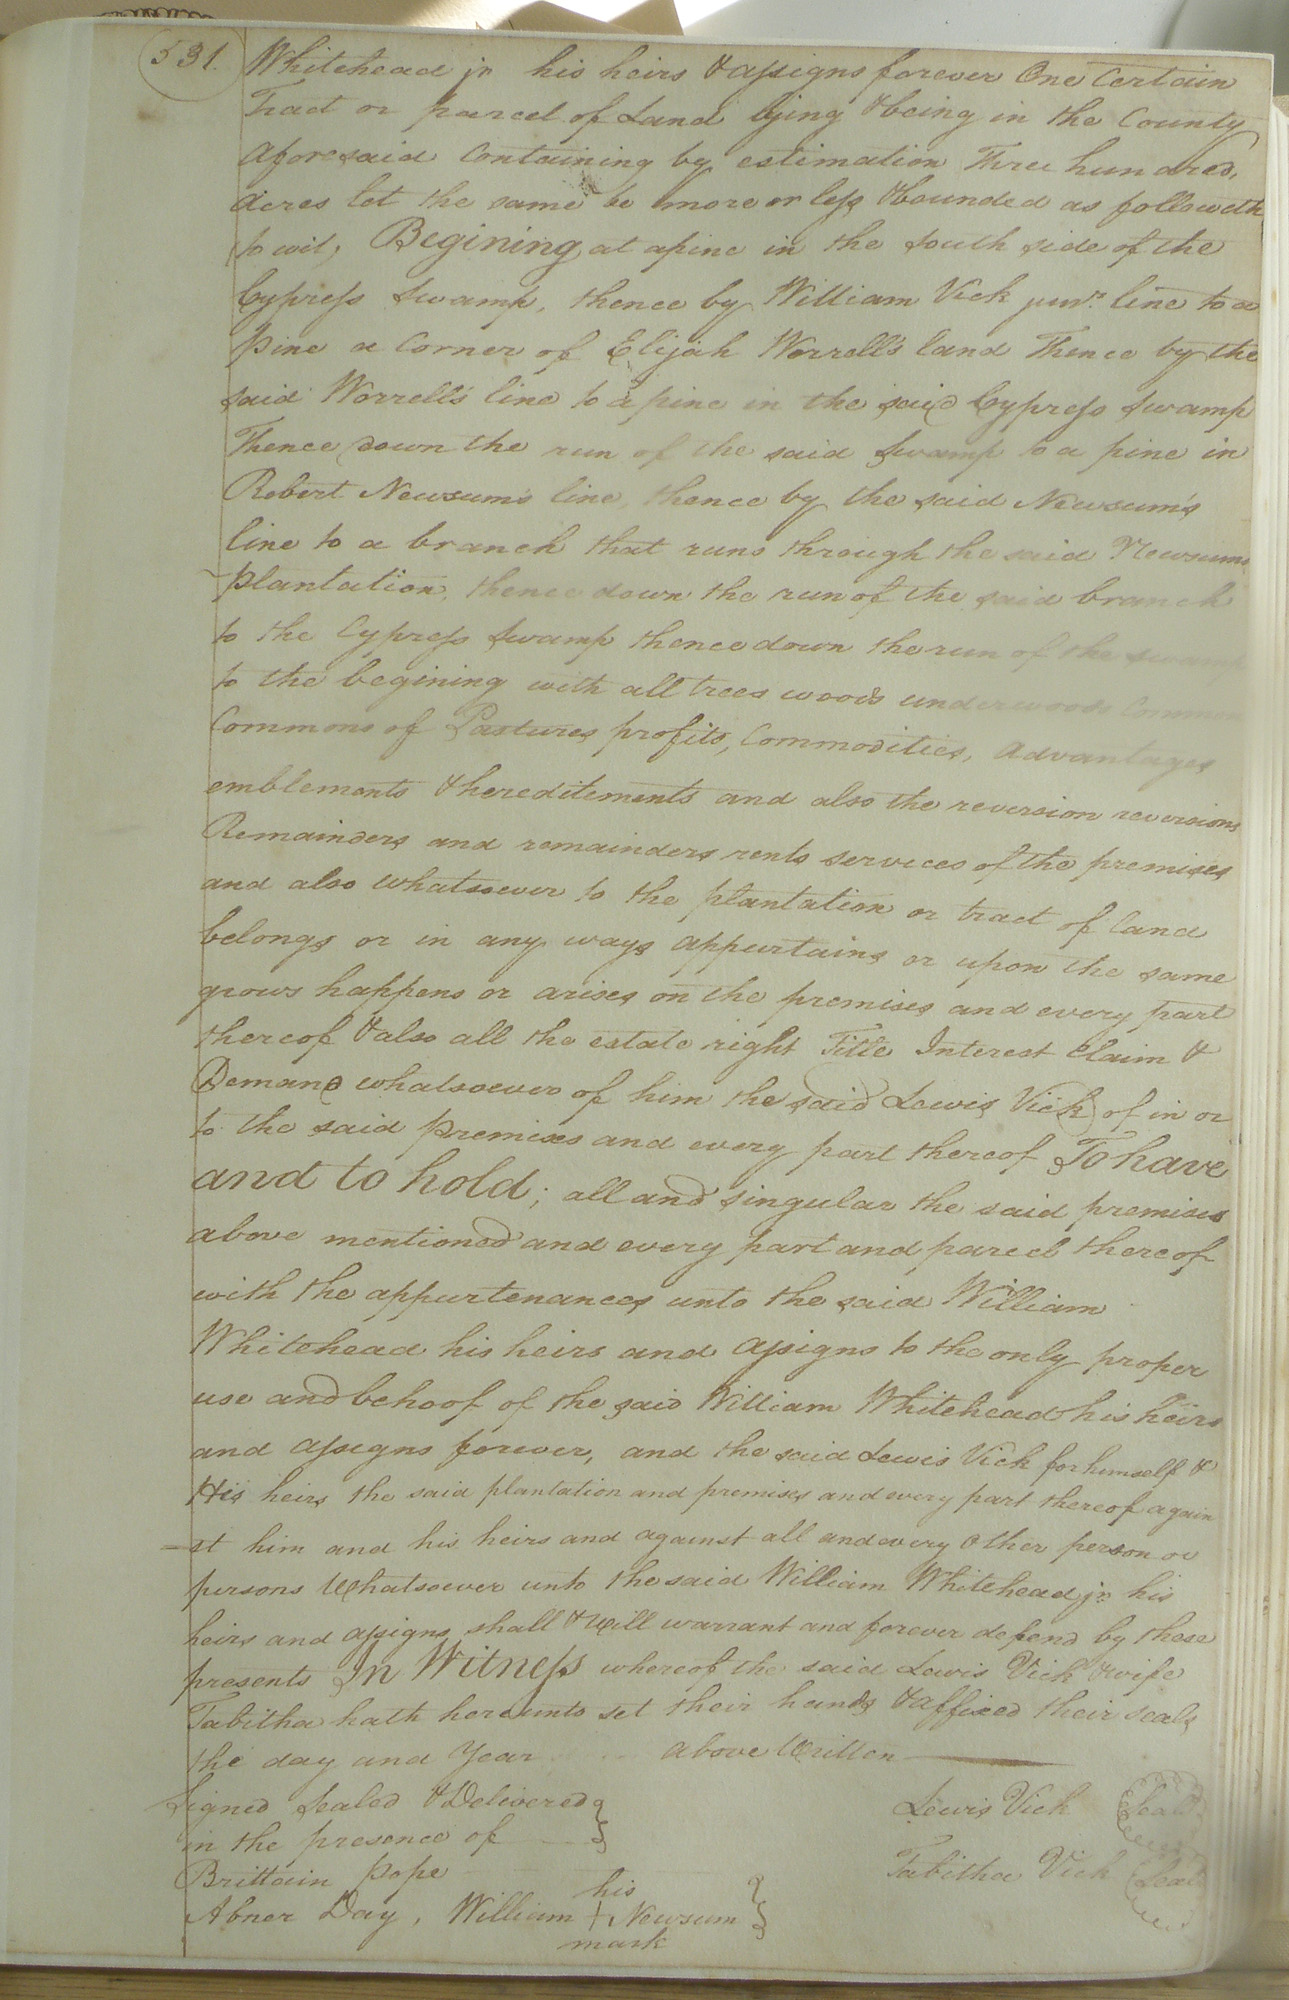 531.
Whitehead jr his heirs & assigns forever One Certain
Tract or parcel of Land lying & being in the County
Aforesaid Containing by estimation Three hundred,
Acres let the same be more or less & bounded as followeth
to wit, Begining at a pine in the South side of the
Cypress Swamp, thence by William Vick junr. line to a
Pine a Corner of Elijah Worrell's land Thence by the
said Worrell's line to a pine in the said Cypress Swamp
Thence down the run of the said Swamp to a pine in
Robert Newsum's line, thence by the said Newsum's
line to a branch that runs through the said Newsums
plantation, thence down the run of the said branch
to the Cypress Swamp thence down the run of the swamp
to the begining with all trees woods underwoods Common
Commons of Pastures profits, Commodities, Advantages
emblements & hereditements and also the reversion reversions
Remainders and remainders rents services of the premises
and also whatsoever to the plantation or tract of land
belongs or in any ways appurtains or upon the same
grows happens or arises on the premises and every part
thereof & also all the estate right Title Interest Claim &
Demand whatsoever of him the said Lewis Vick of in or
to the said premises and every part thereof To have
and to hold; all and singular the said premises
above mentioned and every part and parcel thereof
with the appurtenances unto the said William
Whitehead his heirs and assigns to the only proper
use and behoof of the said William Whitehead his heirs
and assigns forever, and the said Lewis Vick for himself &
His heirs the said plantation and premises and every part thereof again
=st him and his heirs and against all and every other person or
persons Whatsoever unto the said William Whitehead jr. his
heirs and assigns shall & Will warrant and forever defend by these
presents In Witness whereof the said Lewis Vick & wife
Tabitha hath hereunto set their hands & affixed their seals
the day and Year above Written
Signed Sealed & Delivered
in the presence of
Lewis Vick Seal
Brittain Pope
Tabitha Vick Seal
his
Abner Day, William + Newsum
mark